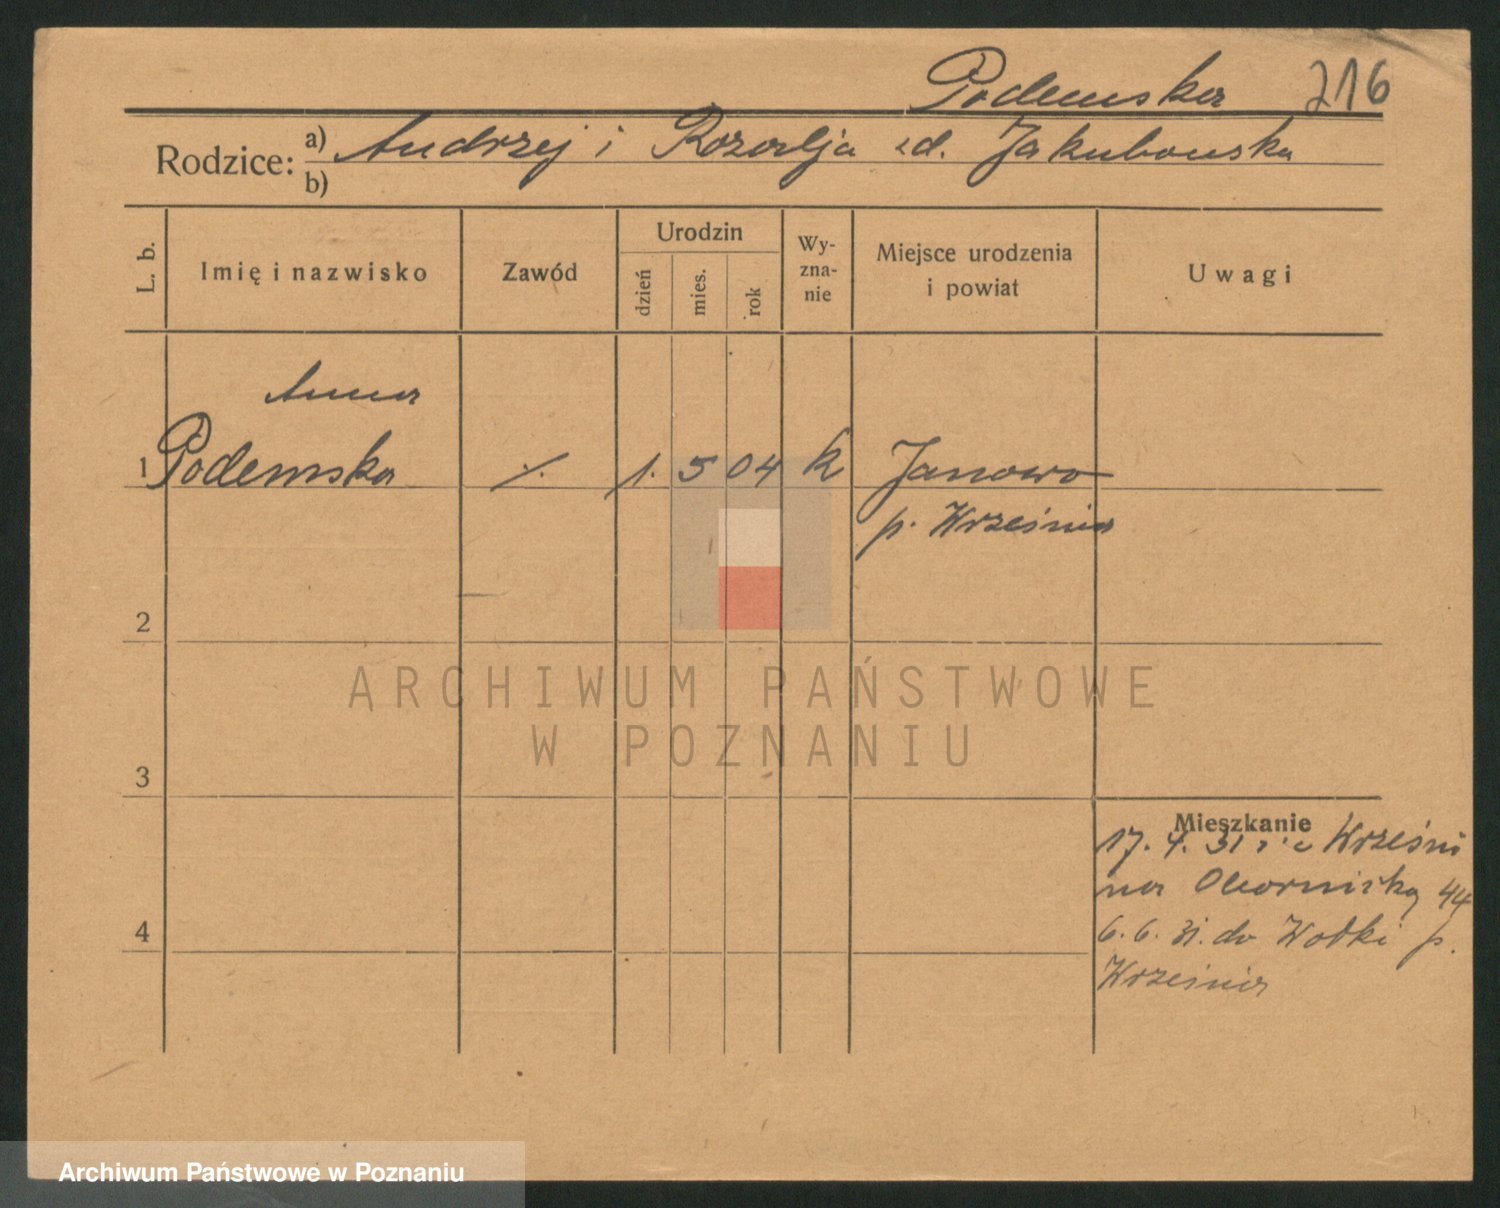 Podemska 216
Rodzice: a) Andrzej i Rozalja zd. Jakubowska
b)
L. b. Imię i nazwisko Zawód Urodzin Wy-zna-nie Miejsce urodzenia i powiat Uwagi
dzień mies. rok
Anna
1 Podemska ./. 1. 5 04 k Janowo
p. Września
2
ARCHIWUM PAŃSTWOWE
W POZNANIU
3
Mieszkanie
17. 4. 31 Wrześni
na 44
6. 6. 31. do p.
4
Września
Archiwum Państwowe w Poznaniu